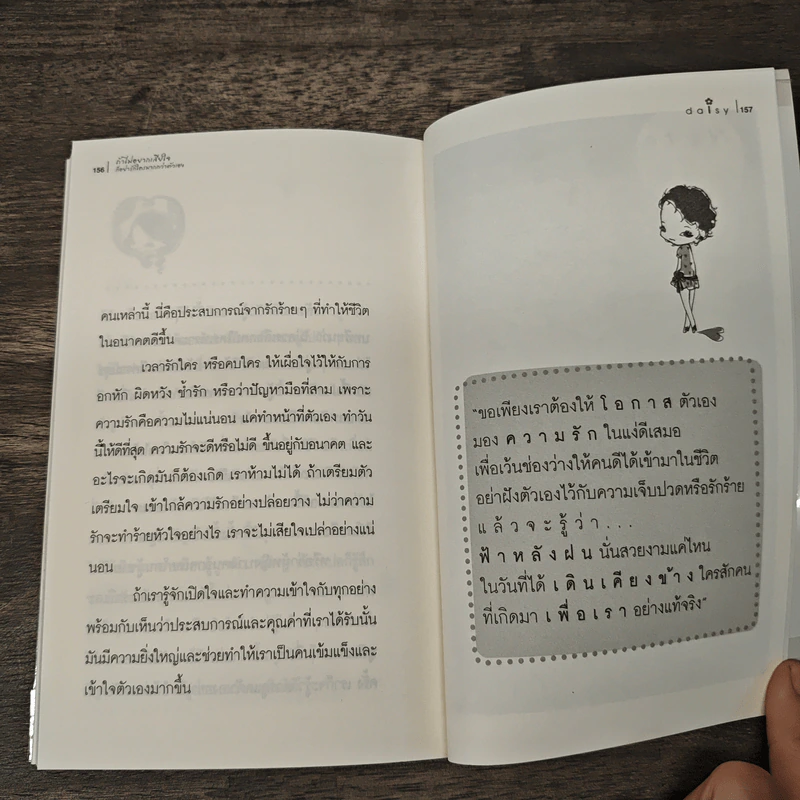 156
ถ้าไม่อยากเสียใจ
คนเหล่านี้ นี่คือประสบการณ์จากรักร้ายๆ ที่ทำให้ชีวิต
ในอนาคตดีขึ้น
เวลารักใคร หรือคบใคร ให้เผื่อใจไว้ให้กับการ
อกหัก ผิดหวัง ช้ำรัก หรือว่าปัญหามือที่สาม เพราะ
ความรักคือความไม่แน่นอน แค่ทำหน้าที่ตัวเอง ทำวัน
นี้ให้ดีที่สุด ความรักจะดีหรือไม่ดี ขึ้นอยู่กับอนาคต และ
อะไรจะเกิดมันก็ต้องเกิด เราห้ามไม่ได้ ถ้าเตรียมตัว
เตรียมใจ เข้าใกล้ความรักอย่างปล่อยวาง ไม่ว่าความ
รักจะทำร้ายหัวใจอย่างไร เราจะไม่เสียใจเปล่าอย่างแน่
นอน
ถ้าเรารู้จักเปิดใจและทำความเข้าใจกับทุกอย่าง
พร้อมกับเห็นว่าประสบการณ์และคุณค่าที่เราได้รับนั้น
มันมีความยิ่งใหญ่และช่วยทำให้เราเป็นคนเข้มแข็งและ
เข้าใจตัวเองมากขึ้น
daisy 157
"ขอเพียงเราต้องให้ โ อ ก า ส ตัวเอง
มอง ค ว า ม รั ก ในแง่ดีเสมอ
เพื่อเว้นช่องว่างให้คนดีได้เข้ามาในชีวิต
อย่าฝังตัวเองไว้กับความเจ็บปวดหรือรักร้าย
แ ล้ ว จ ะ รู้ ว่ า . . .
ฟ้ า ห ลั ง ฝ น นั่นสวยงามแค่ไหน
ในวันที่ได้ เ ดิ น เ คี ย ง ข้ า ง ใครสักคน
ที่เกิดมา เ พื่ อ เ ร า อย่างแท้จริง"